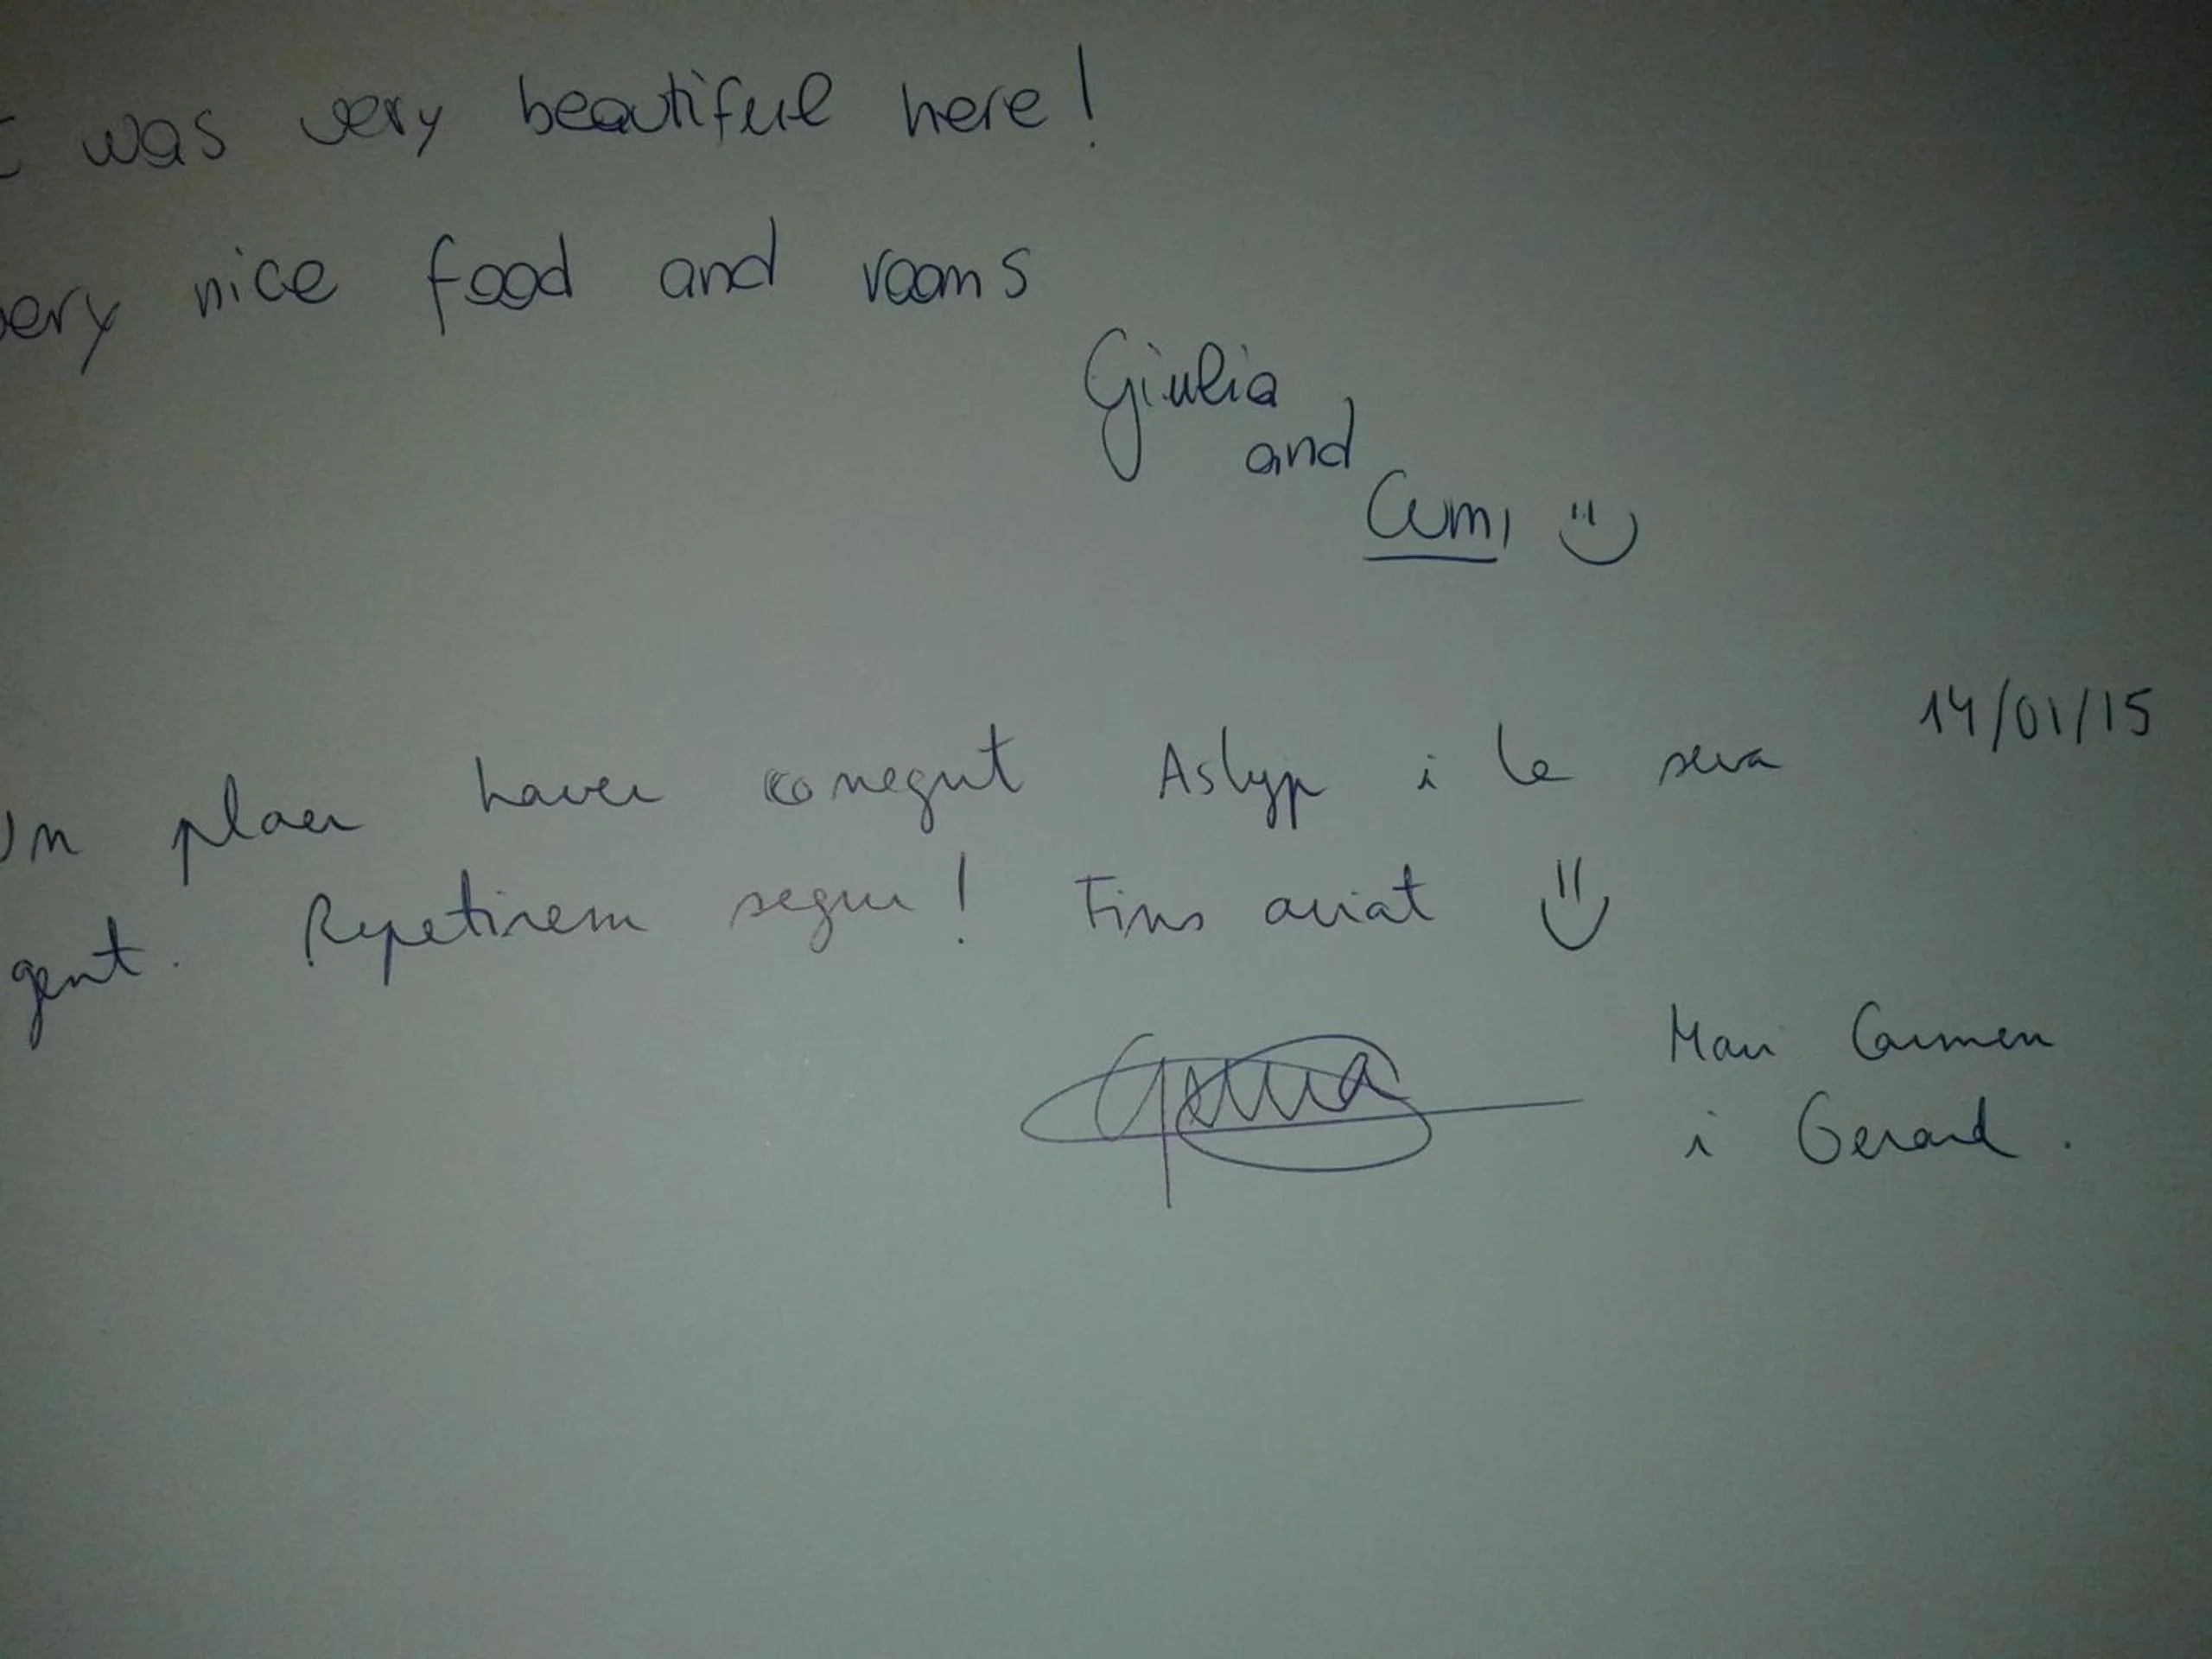 was very beautiful here!
ery nice food and rooms
Giulia
and
Cumi
14/01/15
Un plaer haver conegut Aslyp i la seva
gent. Repetirem segur! Fins aviat
Mari Carmen
i Gerard.